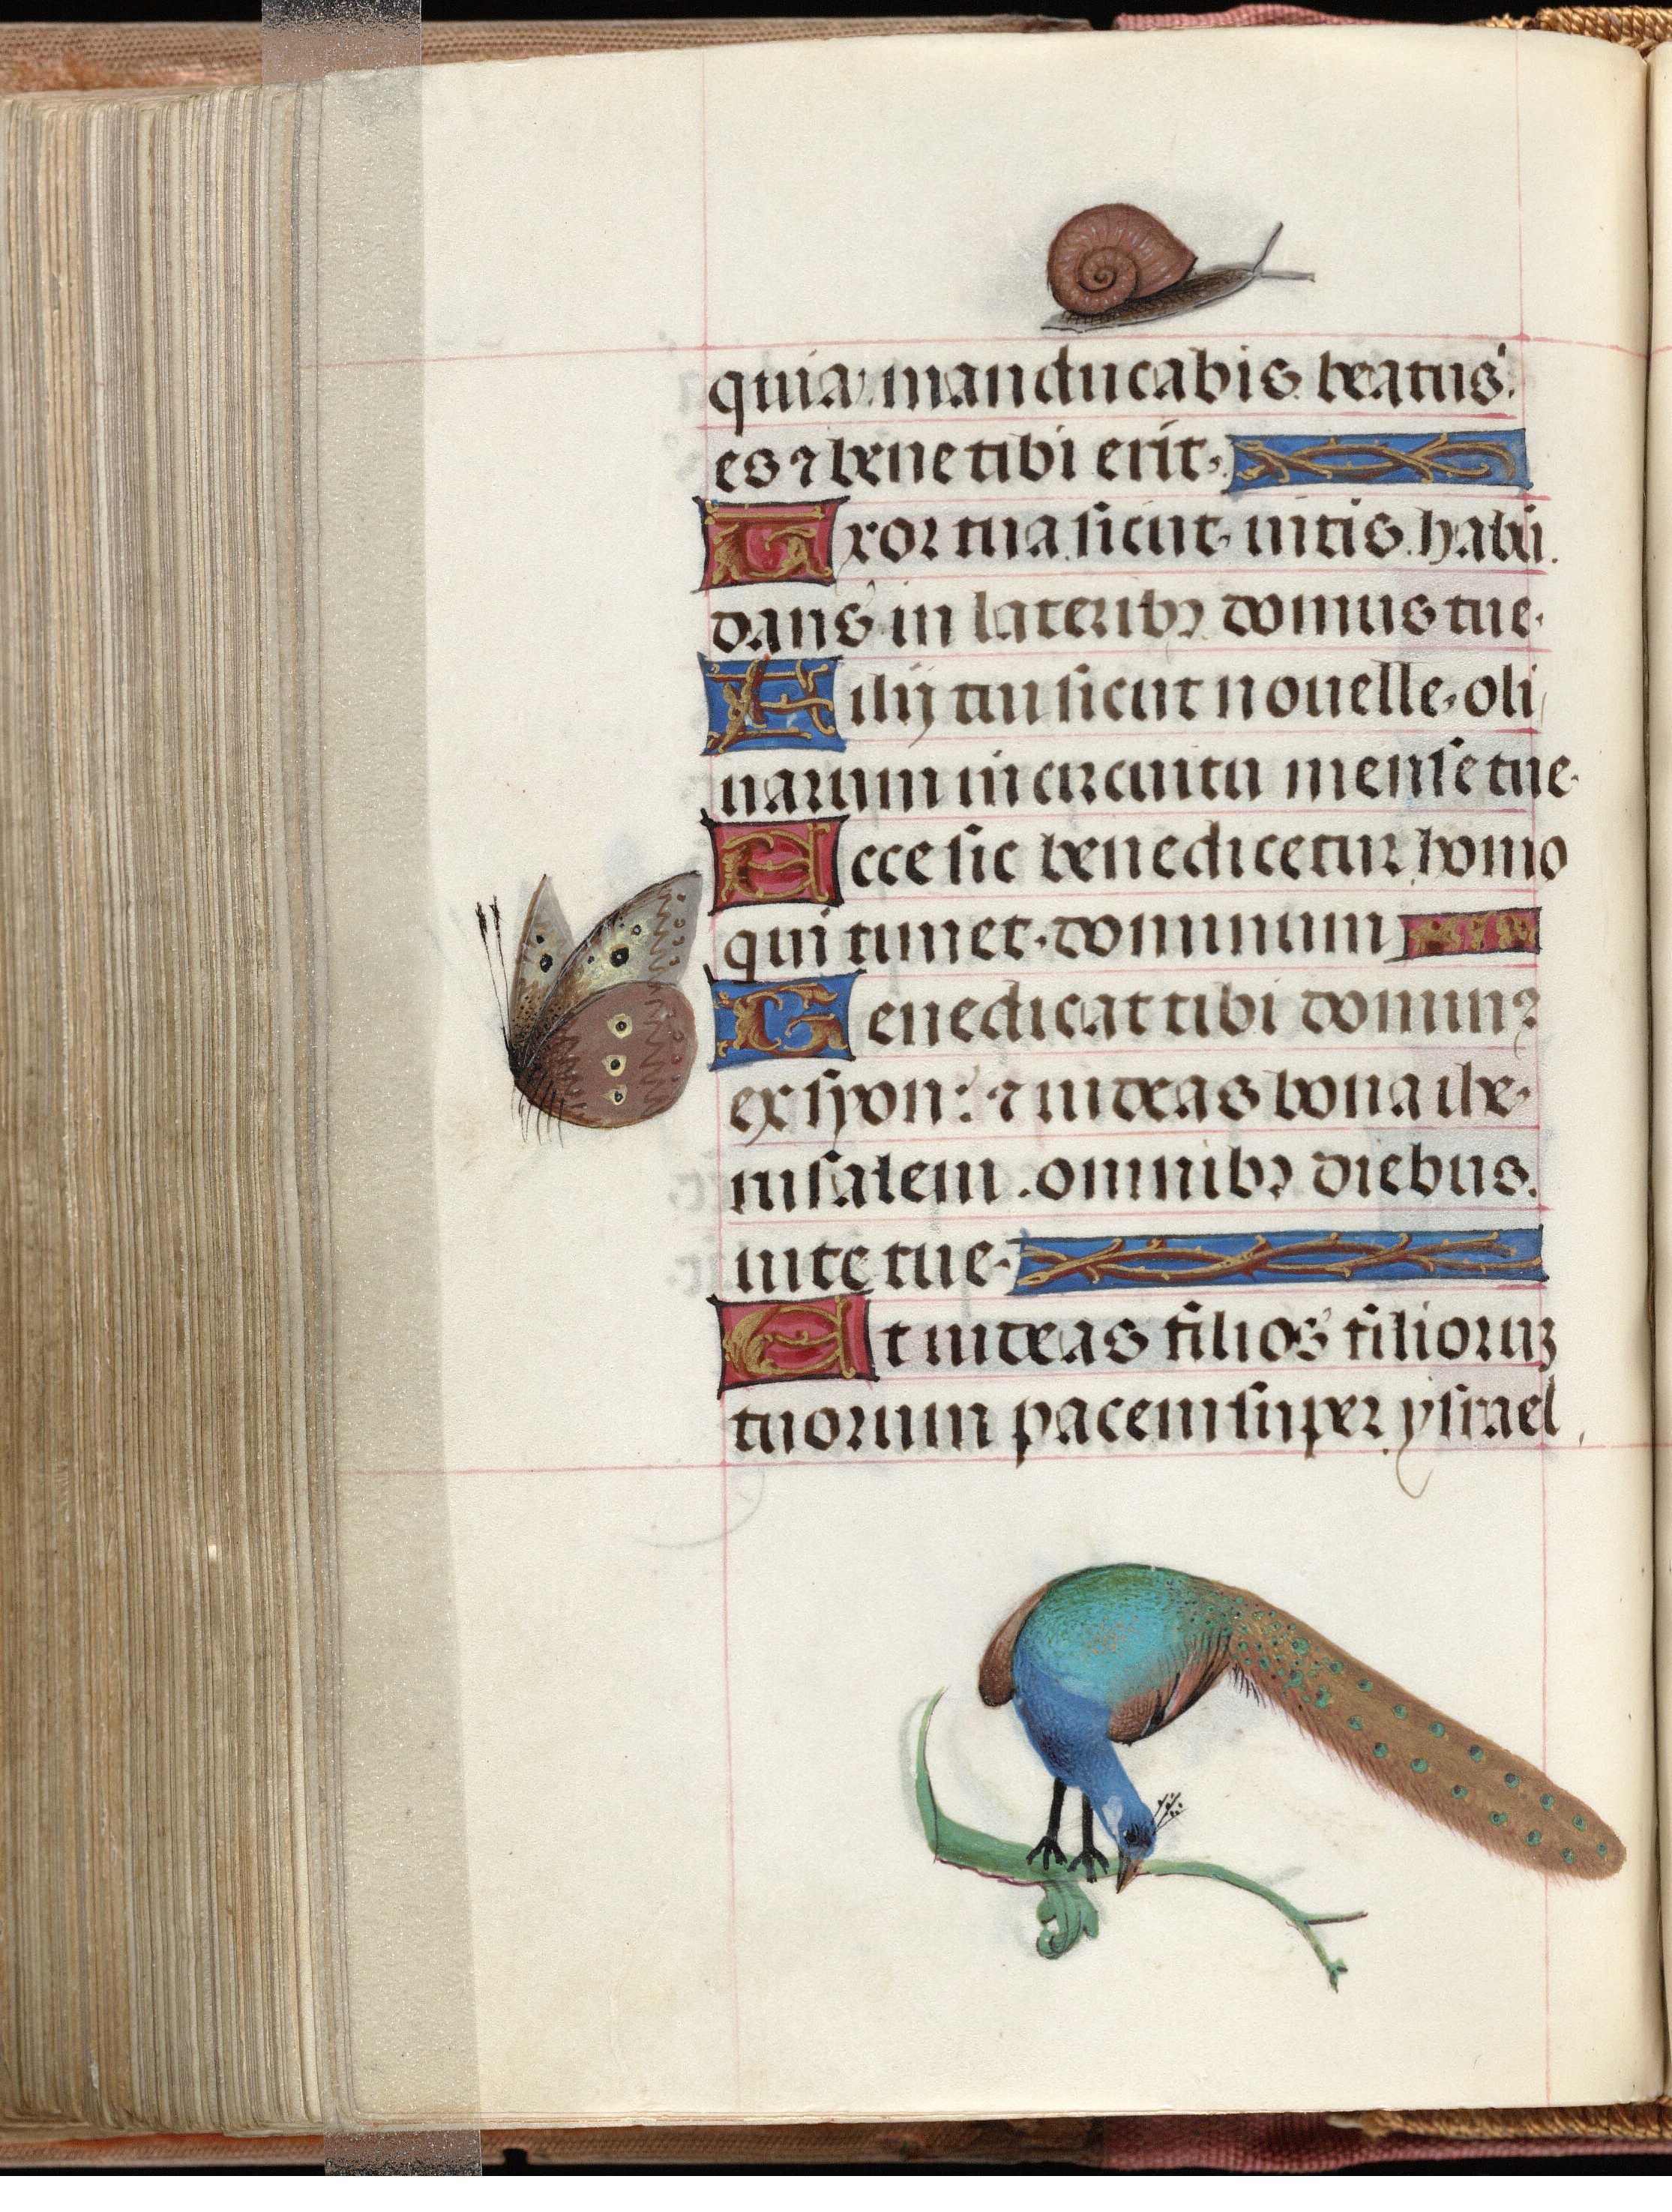 quia manducabis beatus
es ⁊ bene tibi erit.
Uxor tua sicut uitis habū
dans in lateribꝫ domus tue.
Filij tui sicut nouelle oli
uarum in circuitu mense tue.
Ecce sic benedicetur homo
qui timet dominum
Benedicat tibi dominꝰ
ex syon: ⁊ uideas bona ihe
rusalem omnibꝫ diebus.
uite tue.
Et uideas filios filioruꝫ
tuorum pacem super ysrael